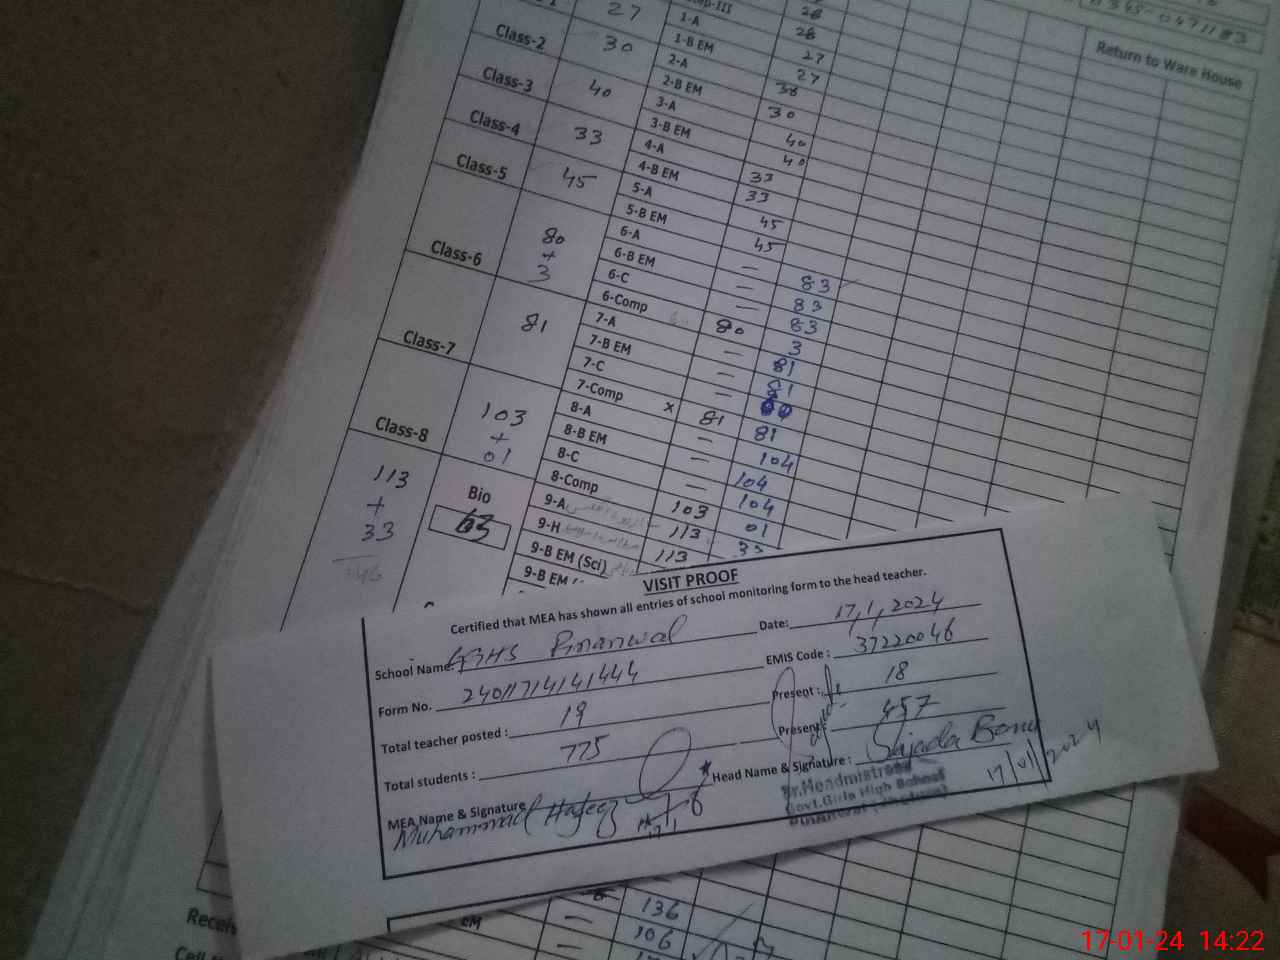 Return to Ware House
27
1-A
28
1-B EM
27
Class-2
30
2-A
27
2-B EM
38
Class-3
40
3-A
30
3-B EM
40
Class-4
33
4-A
40
4-B EM
33
Class-5
45
5-A
33
5-B EM
45
6-A
45
Class-6
80
+
3
6-B EM
—
83
6-C
—
83
6-Comp
80
83
Class-7
81
7-A
—
3
7-B EM
—
81
7-C
—
81
7-Comp
x
81
Class-8
103
+
01
8-A
—
81
8-B EM
—
104
8-C
—
104
8-Comp
103
104
113
+
33
Bio
63
9-A
113
01
9-H
113
33
9-B EM (Sci)
9-B EM
VISIT PROOF
Certified that MEA has shown all entries of school monitoring form to the head teacher.
School Name: GGHS Pinanwal Date: 17,1,2024
Form No. 24011714141444 EMIS Code : 37220046
Total teacher posted : 19 Present : 18
Total students : 775 Present : 457
MEA Name & Signature Muhammad Hafeez Head Name & Signature : Sajada Bano
17/01/2024
Sr.Headmistress
Govt.Girls High School
EM
—
136
—
106
Cell
17-01-24 14:22